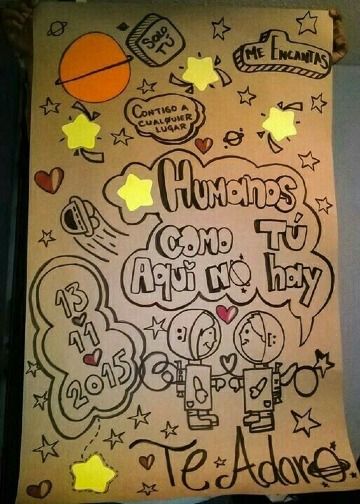 SOLO
TÚ
ME ENCANTAS
CONTIGO A
CUALQUIER
LUGAR
HUMANOS
COMO TÚ
AQUÍ NO hay
13
11
2015
Te Adoro